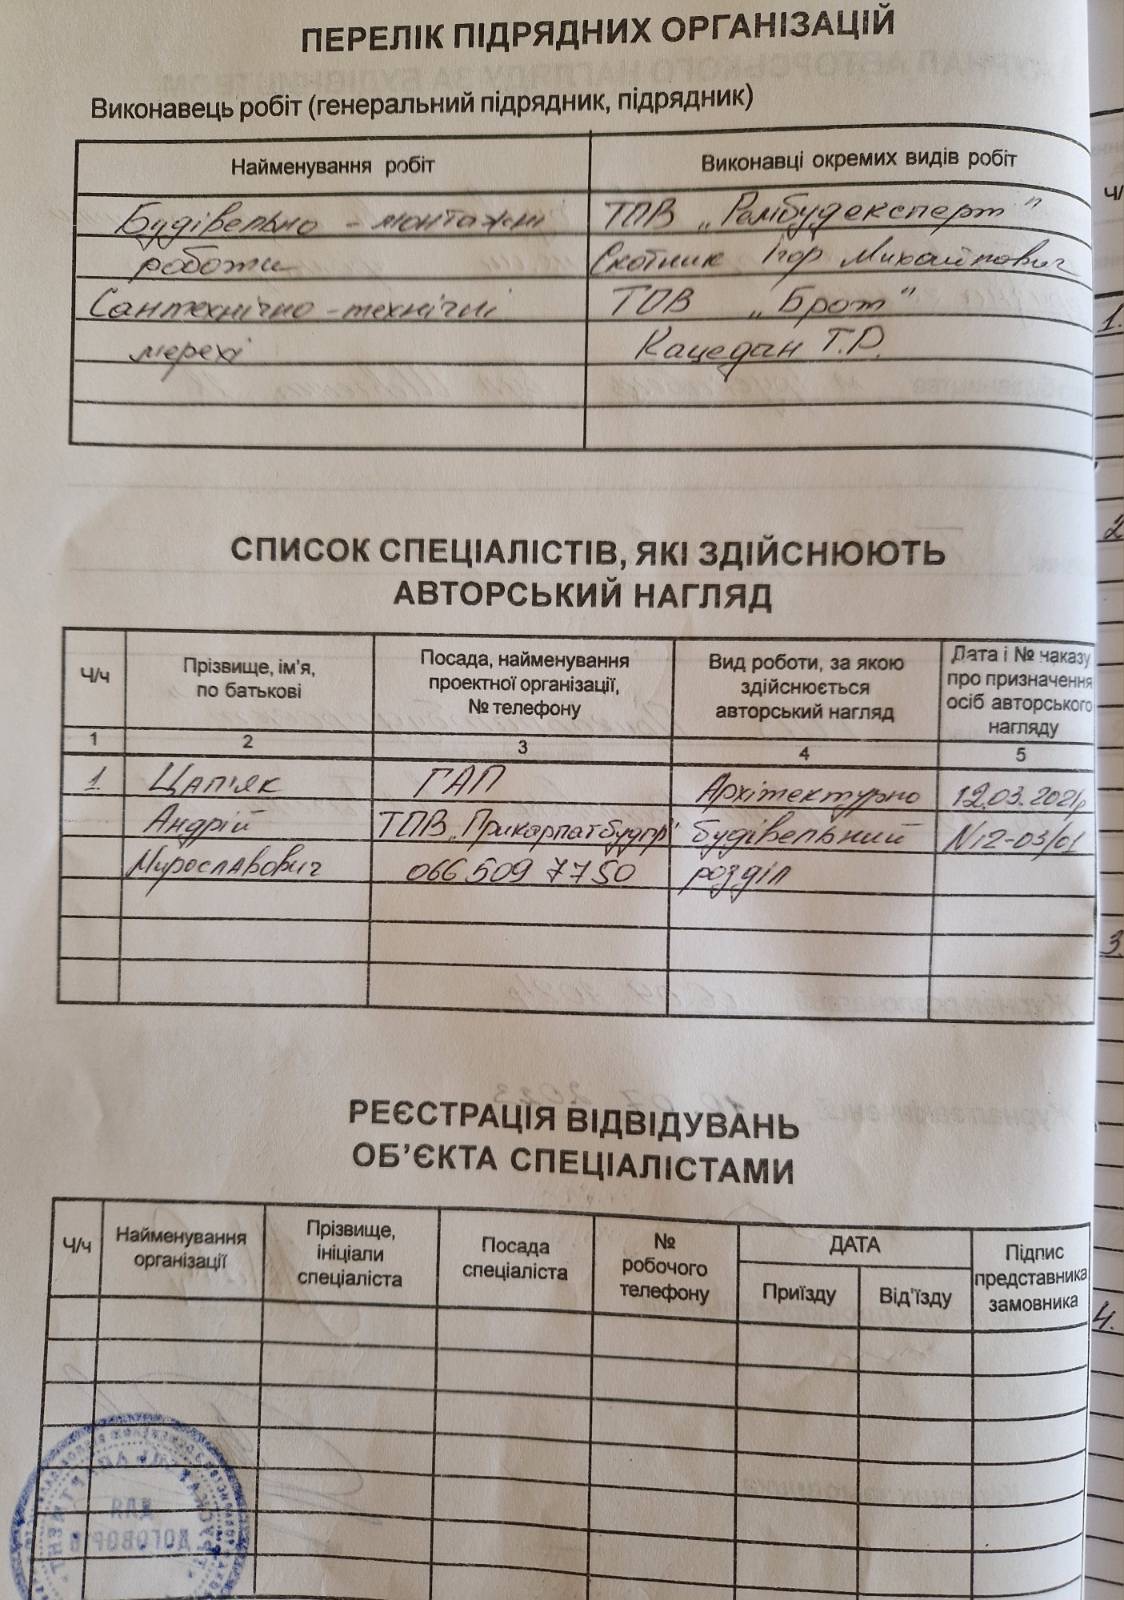 ПЕРЕЛІК ПІДРЯДНИХ ОРГАНІЗАЦІЙ
Виконавець робіт (генеральний підрядник, підрядник)
Найменування робіт
Виконавці окремих видів робіт
Будівельно - монтажні
ТПВ „Ромбудексперт"
роботи
Скотник Ігор Михайлович
Сантехнічно - технічні
ТПВ „Брот"
мережі
Кацедан Т.Р.
СПИСОК СПЕЦІАЛІСТІВ, ЯКІ ЗДІЙСНЮЮТЬ
АВТОРСЬКИЙ НАГЛЯД
Ч/ч
Прізвище, ім'я,
по батькові
Посада, найменування
проектної організації,
№ телефону
Вид роботи, за якою
здійснюється
авторський нагляд
Дата і № наказу
про призначення
осіб авторського
нагляду
1 2 3 4 5
1. Цап'як ГАП Архітектурно 12.03.2021р
Андрій ТПВ „Прикарпатбудпр" будівельний N12-03/01
Мирославович 066 509 77 50 розділ
РЕЄСТРАЦІЯ ВІДВІДУВАНЬ
ОБ'ЄКТА СПЕЦІАЛІСТАМИ
Ч/ч
Найменування
організації
Прізвище,
ініціали
спеціаліста
Посада
спеціаліста
№
робочого
телефону
ДАТА
Приїзду
Від'їзду
Підпис
представника
замовника
Ч/
1.
2
3.
4.
ДЛЯ
ДОГОВОРІВ